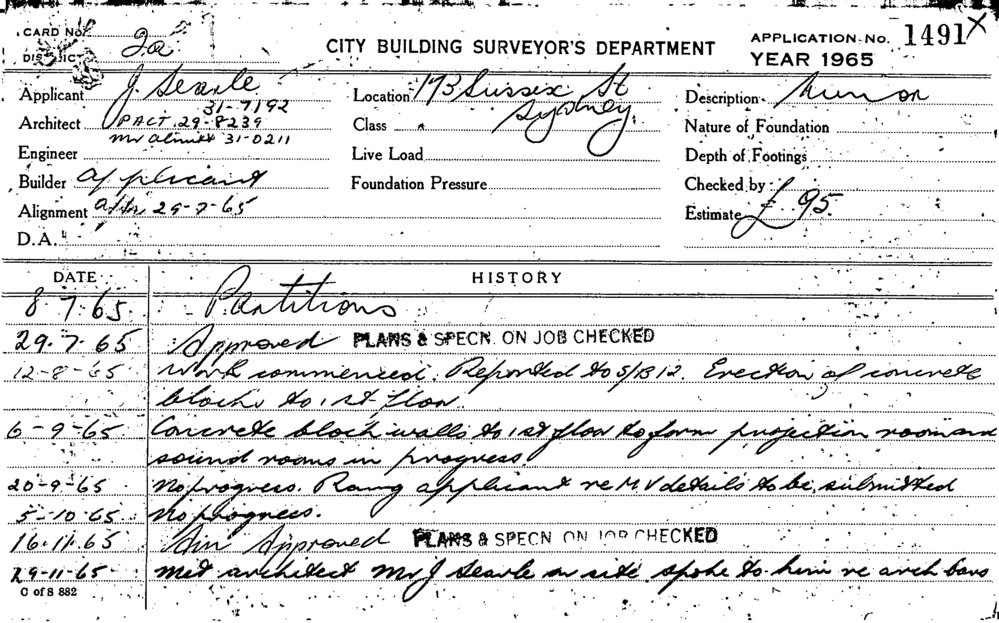 CARD No. 2a
DISTRICT
CITY BUILDING SURVEYOR'S DEPARTMENT
APPLICATION No. 1491 X
YEAR 1965
Applicant J Searle
31-7192
Architect PACT. 29-8239
Mr 31-0211
Engineer
Builder applicant
Alignment 29-7-65
D.A.
Location 173 Sussex St
Sydney.
Class
Live Load
Foundation Pressure
Description
Nature of Foundation
Depth of Footings
Checked by
Estimate £ 95.
DATE HISTORY
8 7.65 Partitions
29.7.65 Approved PLANS & SPECN. ON JOB CHECKED
12-8-65 Work commenced. Reported to S/B 12. Erection of concrete
blocks to 1st floor.
6-9-65 Concrete block walls to 1st floor to form projection room and
sound rooms in progress.
20-9-65 No progress. Rang applicant re MV details to be submitted
5-10-65 No progress.
16.11.65 Am Approved PLANS & SPECN ON JOB CHECKED
29-11-65 Met architect Mr J Searle on site spoke to him re arch bars
C of S 882